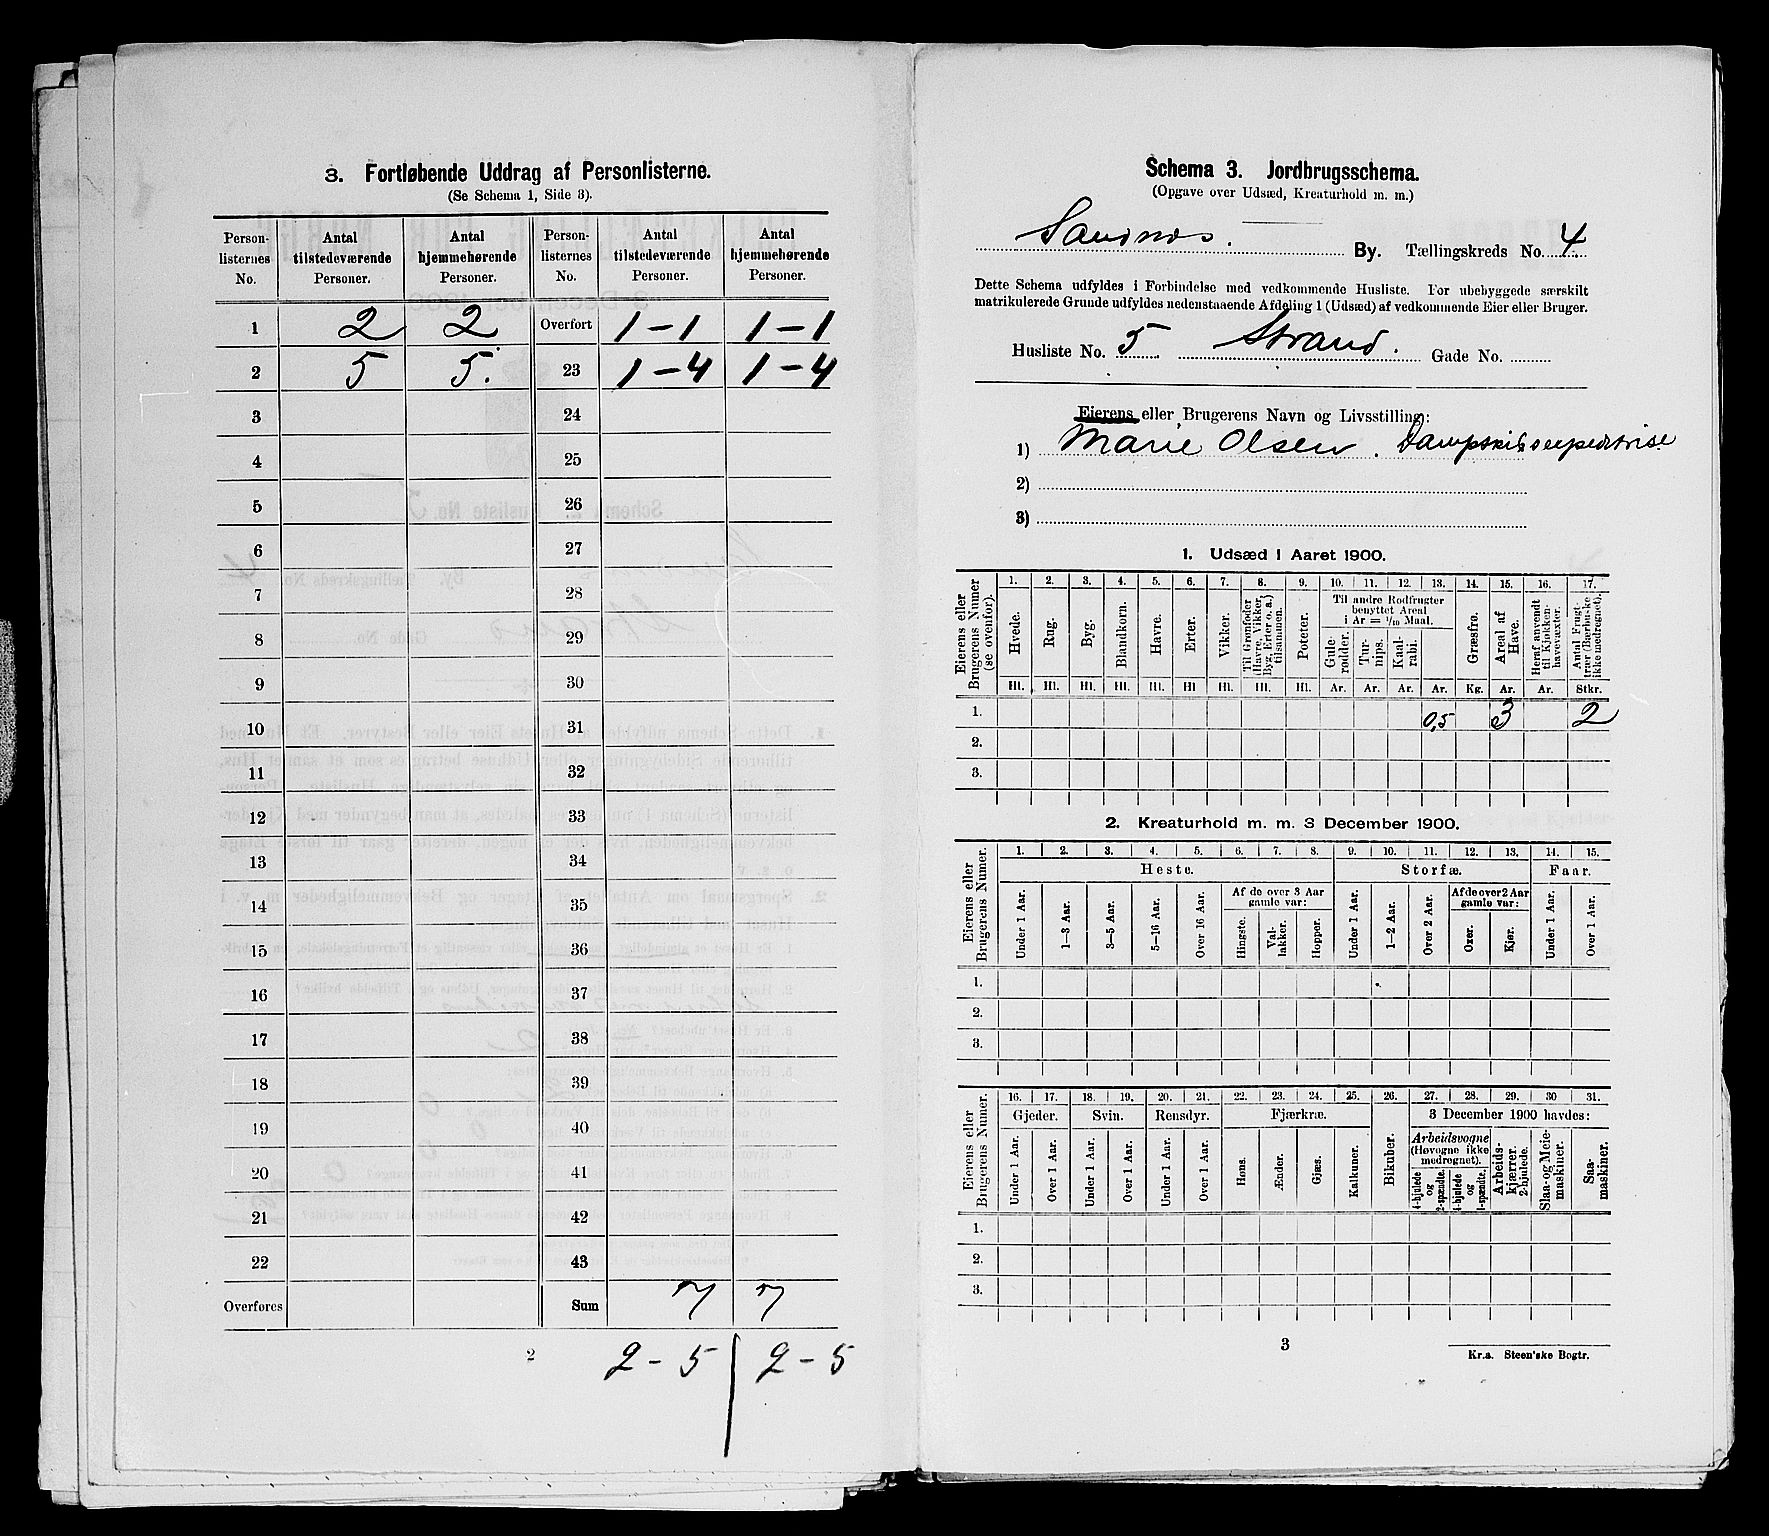 3. Fortløbende Uddrag af Personlisterne.
(Se Schema 1, Side 3).
Person-listernes No. Antal tilstedeværende Personer. Antal hjemmehørende Personer. Person-listernes No. Antal tilstedeværende Personer. Antal hjemmehørende Personer.
1 2 2 Overført 1-1 1-1
2 5 5. 23 1-4 1-4
3 24
4 25
5 26
6 27
7 28
8 29
9 30
10 31
11 32
12 33
13 34
14 35
15 36
16 37
17 38
18 39
19 40
20 41
21 42
22 43
Overføres Sum 7 7
2
2-5 2-5
Schema 3. Jordbrugsschema.
(Opgave over Udsæd, Kreaturhold m. m.)
Sandnes. By. Tællingskreds No. 4.
Dette Schema udfyldes i Forbindelse med vedkommende Husliste. For ubebyggede særskilt
matrikulerede Grunde udfyldes nedenstaaende Afdeling 1 (Udsæd) af vedkommende Eier eller Bruger.
Husliste No. 5 Strand. Gade No.
Eierens eller Brugerens Navn og Livsstilling:
1) Marie Olsen.
2)
3)
1. Udsæd i Aaret 1900.
Eierens eller Brugerens Numer (se ovenfor).
1. 2. 3. 4. 5. 6. 7. 8. 9. 10. 11. 12. 13. 14. 15. 16. 17.
Hvede. Rug. Byg. Blandkorn. Havre. Erter. Vikker. Til Grønfoder (Havre, Vikker, Byg, Erter o. a.) tilsammen. Poteter.
Til andre Rodfrugter benyttet Areal i Ar = 1/10 Maal.
Gule-rødder. Tur-nips. Kaal-rabi. Græsfrø. Areal af Have. Heraf anvendt til Kjøkken-havevæxter. Antal Frugt-træer (Bærbuske ikke medregnet).
Hl. Hl. Hl. Hl. Hl. Hl Hl. Hl. Hl. Ar. Ar. Ar. Ar. Kg. Ar. Ar. Stkr.
1. 0,5 3 2
2.
3.
2. Kreaturhold m. m. 3 December 1900.
Eierens eller Brugerens Numer.
1. 2. 3. 4. 5. 6. 7. 8. 9. 10. 11. 12. 13. 14. 15.
Heste. Storfæ. Faar.
Af de over 3 Aar gamle var: Af de over 2 Aar gamle var:
Under 1 Aar. 1—3 Aar. 3—5 Aar. 5—16 Aar. Over 16 Aar. Hingste. Val-lakker. Hopper. Under 1 Aar. 1—2 Aar. Over 2 Aar. Oxer. Kjør. Under 1 Aar. Over 1 Aar.
1.
2.
3.
Eierens eller Brugerens Numer.
16. 17. 18. 19. 20. 21. 22. 23. 24. 25. 26. 27. 28. 29. 30 31.
Gjeder. Svin. Rensdyr. Fjærkræ. Bikuber. 3 December 1900 havdes:
Under 1 Aar. Over 1 Aar. Under 1 Aar. Over 1 Aar. Under 1 Aar. Over 1 Aar. Høns. Ænder. Gjæs. Kalkuner.
Arbeidsvogne (Høvogne ikke medregnet).
4-hjulede og 2-spændte. 4-hjulede og 1-spændte. Arbeids-kjærrer. 2-hjulede. Slaa- og Meie-maskiner. Saa-maskiner.
1.
2.
3.
3
Kr.a. Steen'ske Bogtr.